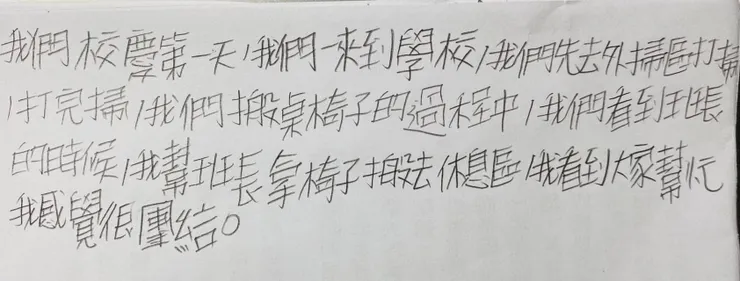 我們校慶第一天,我們一來到學校,我們先去外掃區打掃
,打完掃,我們搬桌椅子的過程中,我們看到班長
的時候,我幫班長拿椅子搬去休息區,我看到大家幫忙
我感覺很團結。